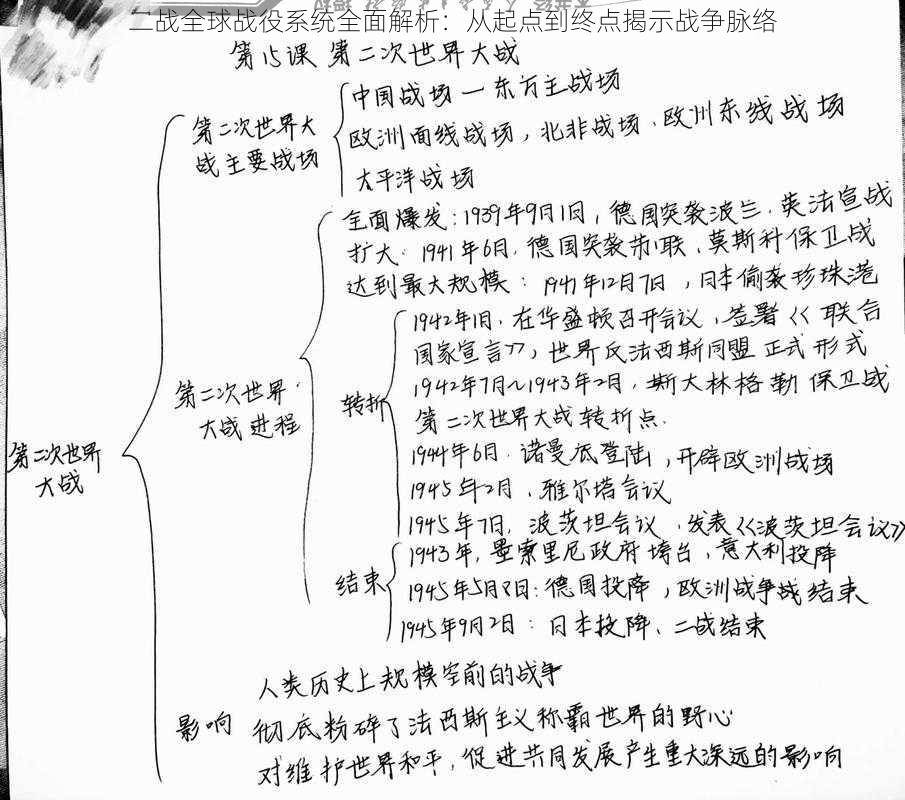 二战全球战役系统全面解析：从起点到终点揭示战争脉络
第15课 第二次世界大战
中国战场一东方主战场
第二次世界大
战主要战场
欧洲西线战场，北非战场、欧州东线战场
太平洋战场
全面爆发：1939年9月1日，德国突袭波兰.英法宣战
扩大：1941年6月.德国突袭苏联、莫斯科保卫战
达到最大规模：1941年12月7日，日本偷袭珍珠港
1942年1月.在华盛顿召开会议，签署《联合
国家宣言》，世界反法西斯同盟正式形式
第二次世界
大战进程
转折
1942年7月~1943年2月.斯大林格勒保卫战
第二次世界大战转折点.
1944年6月.诺曼底登陆，开辟欧洲战场
第二次世界
大战
1945年2月.雅尔塔会议
1945年7月.波茨坦会议.发表《波茨坦会议》
结束
1943年.墨索里尼政府垮台，意大利投降
1945年5月8日：德国投降，欧洲战争战结束
1945年9月2日：日本投降、二战结束
影响
人类历史上规模空前的战争
彻底粉碎了法西斯主义称霸世界的野心
对维护世界和平，促进共同发展产生重大深远的影响